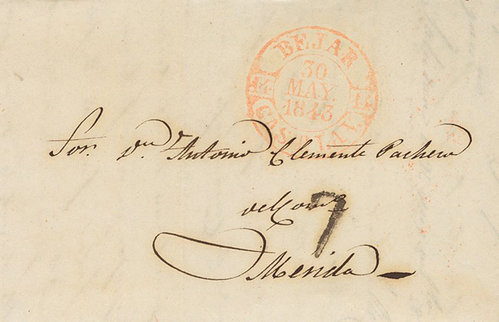 BEJAR
30
MAY
1843
Sor. Dn. Antonio Clemente Pacheco
del Come
7
Merida